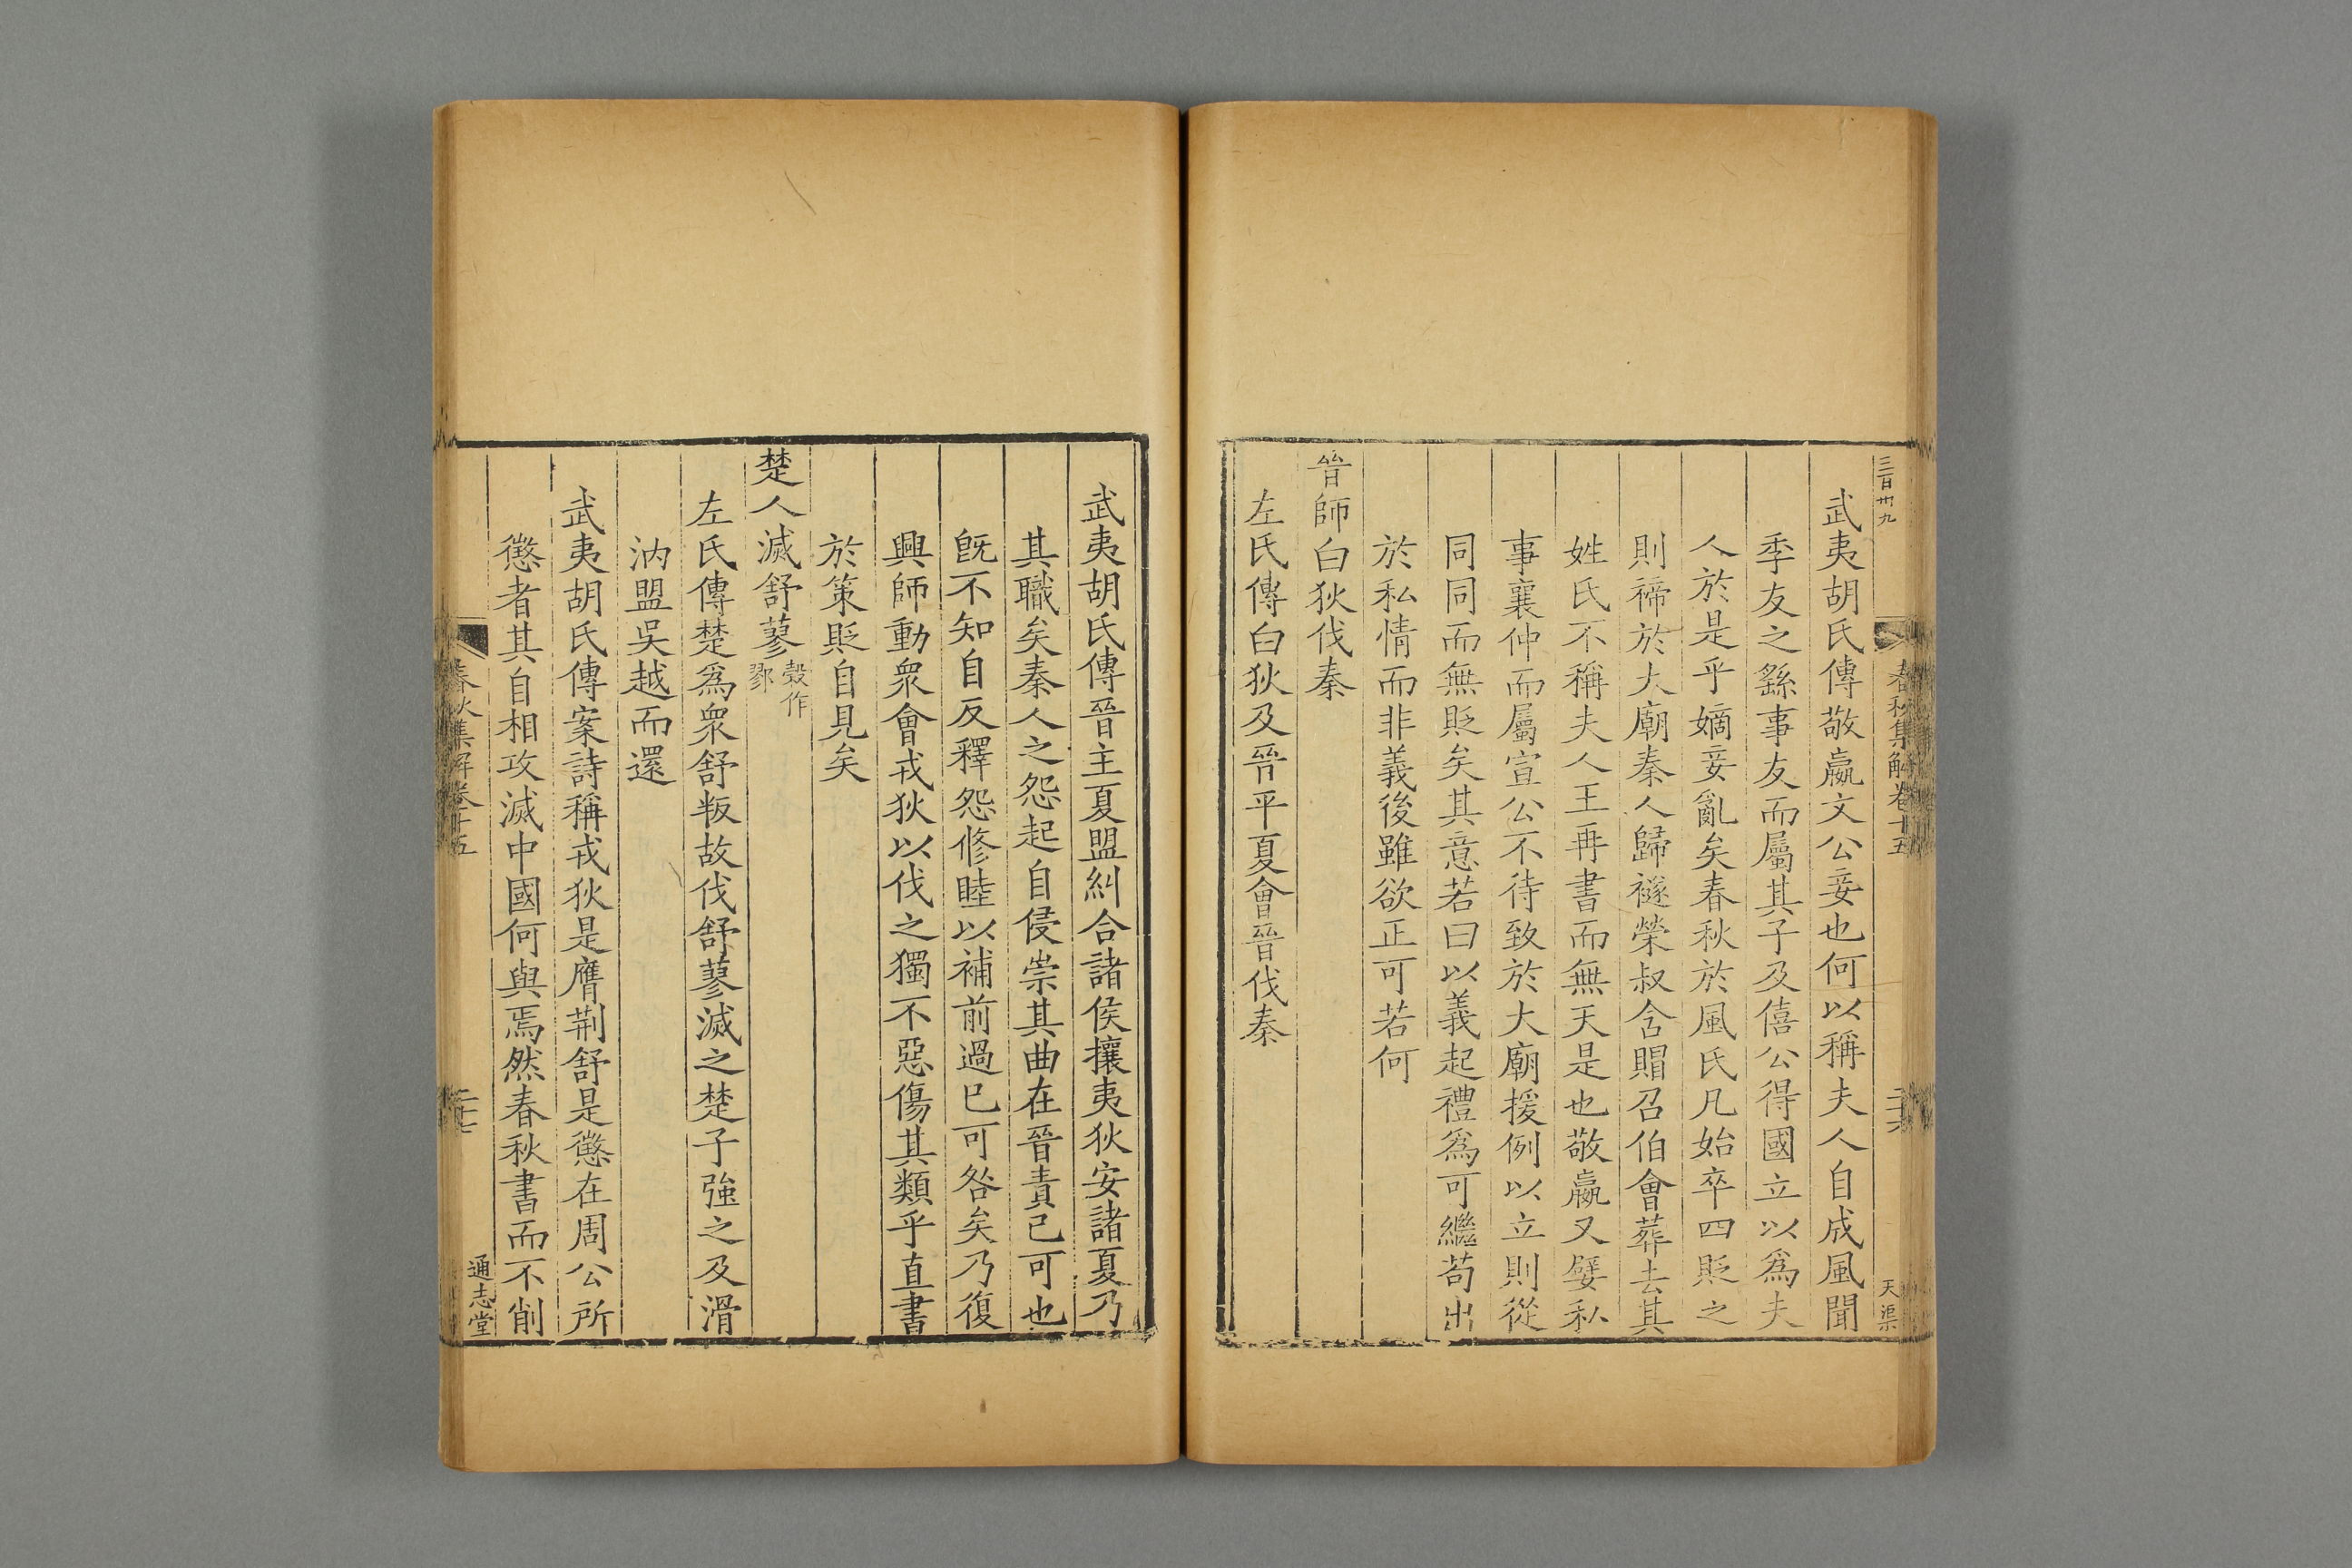 三百卅九
春秋集解卷十五
天渠
武夷胡氏傳敬嬴文公妾也何以稱夫人自成風聞
季友之繇事友而屬其子及僖公得國立以爲夫
人於是乎嫡妾亂矣春秋於風氏凡始卒四貶之
則禘於大廟秦人歸襚榮叔含賵召伯會葬去其
姓氏不稱夫人王再書而無天是也敬嬴又嬖私
事襄仲而屬宣公不待致於大廟援例以立則從
同同而無貶矣其意若曰以義起禮爲可繼苟出
於私情而非義後雖欲正可若何
晉師白狄伐秦
左氏傳白狄及晉平夏會晉伐秦
武夷胡氏傳晉主夏盟糾合諸侯攘夷狄安諸夏乃
其職矣秦人之怨起自侵崇其曲在晉責已可也
旣不知自反釋怨修睦以補前過已可咎矣乃復
興師動衆會戎狄以伐之獨不惡傷其類乎直書
於策貶自見矣
楚人滅舒蓼穀作鄝
左氏傳楚爲衆舒叛故伐舒蓼滅之楚子強之及滑
汭盟吳越而還
武夷胡氏傳案詩稱戎狄是膺荆舒是懲在周公所
懲者其自相攻滅中國何與焉然春秋書而不削
春秋集解卷十五
二十七
通志堂